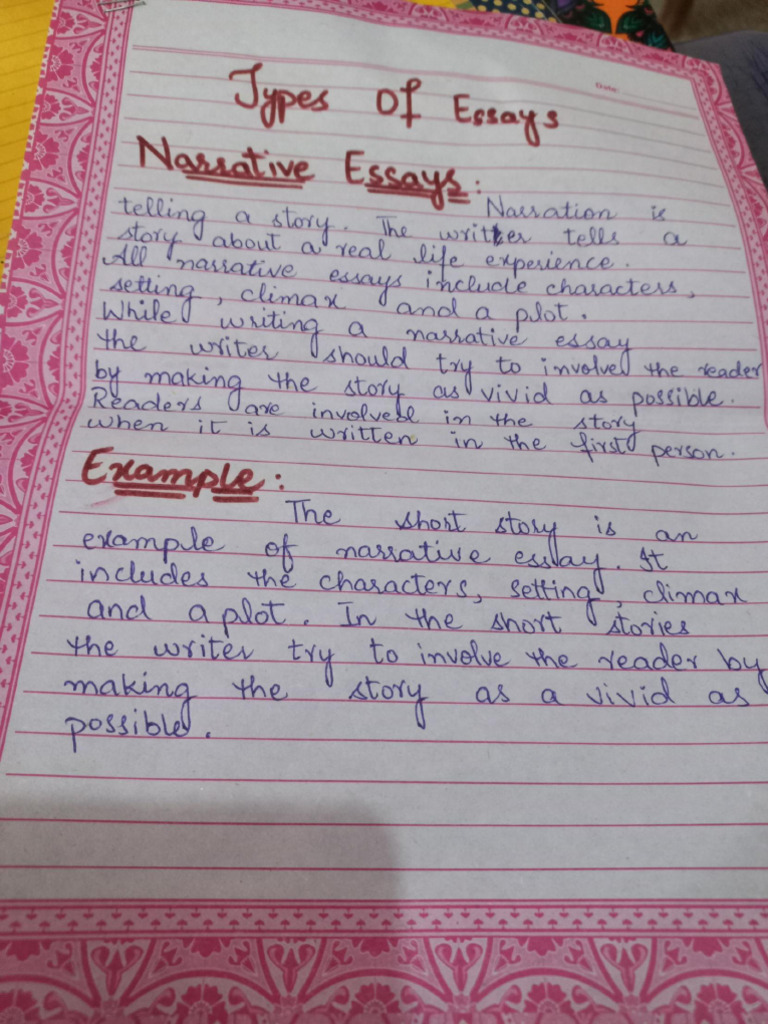 Date:
Types Of Essays
Narrative Essays:
Narration is
telling a story. The writer tells a
story about a real life experience.
All narrative essays include characters,
setting, climax and a plot.
While writing a narrative essay
the writer should try to involve the reader
by making the story as vivid as possible.
Readers are involved in the story
when it is written in the first person.
Example:
The short story is an
example of narrative essay. It
includes the characters, setting, climax
and a plot. In the short stories
the writer try to involve the reader by
making the story as a vivid as
possible.